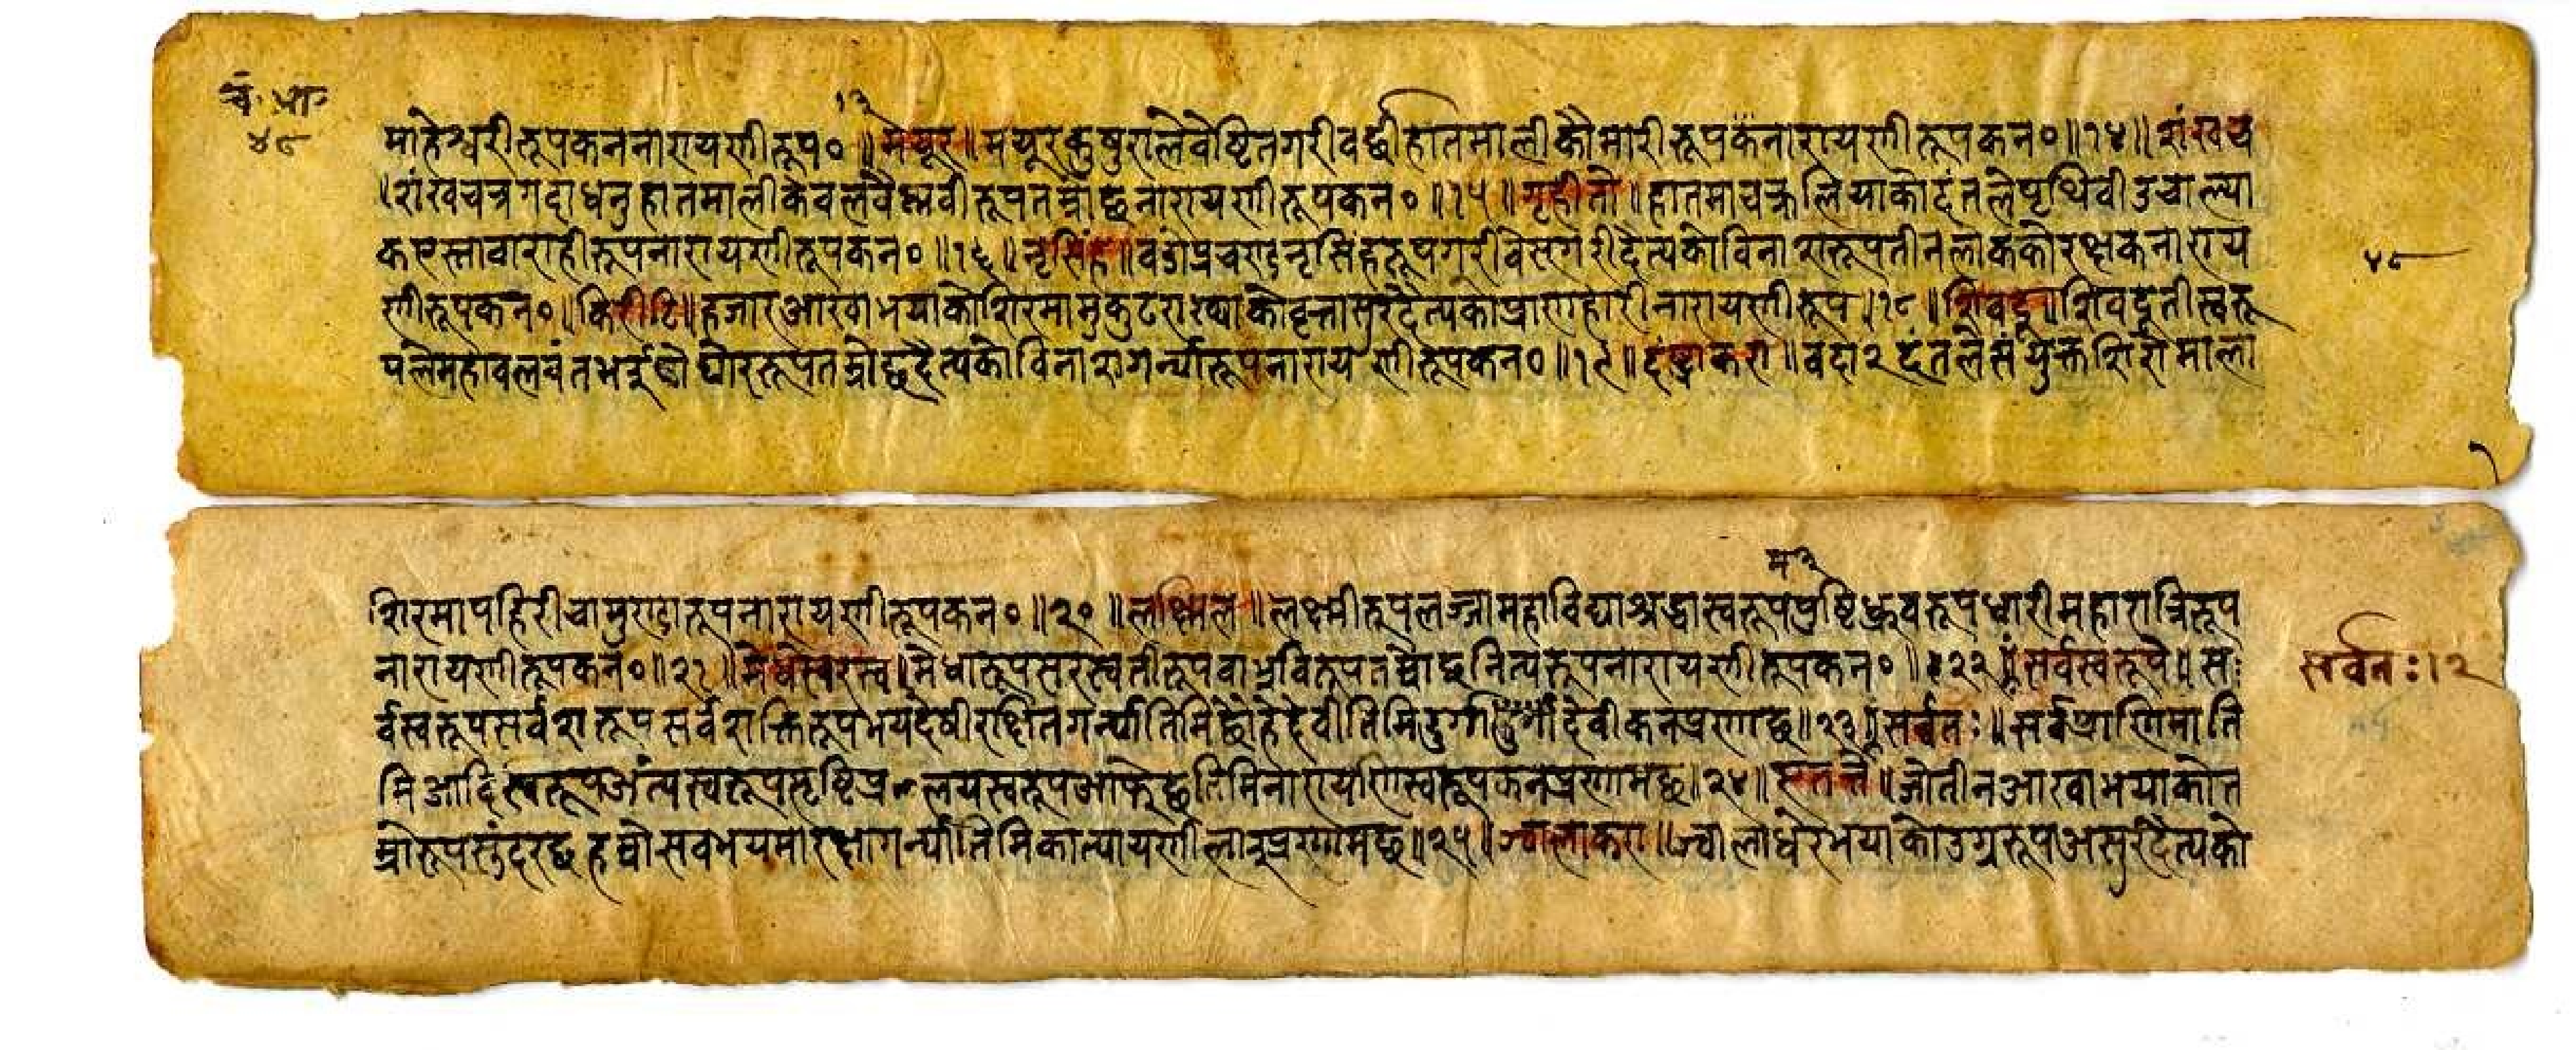 चं. भा
४८
माहेश्वरीरूपकननारायणीरूप० ॥ १३ ॥ मयूर ॥ मयूरकुषुरालेवेष्टितगरीवर्छीहातमालीकौमारीरूपकनारायणीरूपकन० ॥ १४ ॥ शंखच
। शंखचक्रगदाधनुहातमालीकेवलवैष्णवीरूपतम्रोछनारायणीरूपकन० ॥ १५ ॥ गृहीतो ॥ हातमाचक्रलियाकोदंतलेपृथिवीउचाल्या
कोवाराहीरूपनारायणीरूपकन० ॥ १६ ॥ नृसिंह ॥ वडोप्रचण्डनृसिंहरूपगरीवेसगरीदैत्यकोविनाशरूपतीनलोककोरक्षकनाराय
णीरूपकन० ॥ किरीटि ॥ हजारआखाभयाकोशिरमामुकुटराख्याकोवृत्रासुरदैत्यकोप्राणहारीनारायणीरूप ॥ १८ ॥ शिवदू ॥ शिवदूतीस्वरू
पलेमहावलवंतभईघोररूपतम्रोछदैत्यकोविनाशगर्न्यारूपनारायणीरूपकन० ॥ १९ ॥ दंष्ट्राकरा ॥ वदा२दंतलेसंयुक्तशिरोमाला
४८
शिरमापहिरीचामुण्डारूपनारायणीरूपकन० ॥ २० ॥ लक्ष्मिल ॥ लक्ष्मीरूपलज्जामहाविद्याश्रद्धास्वरूपप्रष्टिध्रुवरूपधारीमहारात्रिरूप
नारायणीरूपकन० ॥ २१ ॥ मेधेस्वरस्व ॥ मेधारूपसरस्वतीरूपवाभ्रविरूपतम्रोछनित्यरूपनारायणीरूपकन० ॥ २२ ॥ सर्वस्वरूपे ॥ स
र्वस्वरूपसर्वशरूपसर्वशक्तिरूपभयदेषीरक्षितगर्न्यातिमिछौहेदेवीतिमिदुर्गादेवीकनप्रणाछ ॥ २३ ॥ सर्वतः ॥ सर्वप्राणिमाति
मिआदिस्वरूपअंत्यस्वरूपसृष्टिप्रलयस्वरूपआफैछतिमिनारायणिस्वरूपकनप्रणामछ ॥ २४ ॥ एतत्ते ॥ जोतीनआखाभयाकोत
म्रोरूपसुंदरछहम्रोसवभयमारक्षागर्न्यातिमिकात्यायणीलाइप्रणामछ ॥ २५ ॥ ज्वालाकरा ॥ ज्वालाधेरभयाकोउग्ररूपअसुरदैत्यको
सर्वतः । २